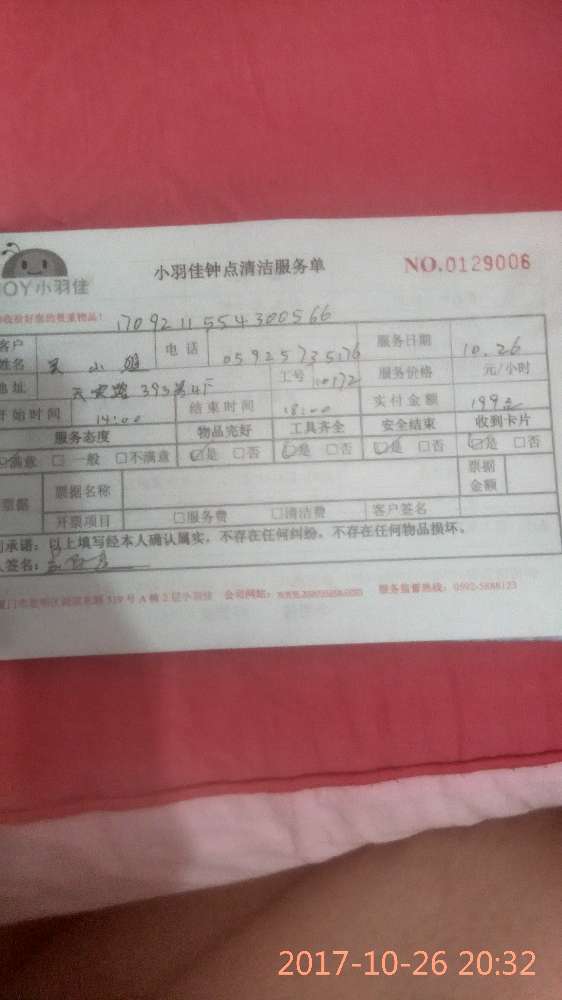 小羽佳钟点清洁服务单 NO.0129006
OY小羽佳
收拾好您的贵重物品! 170921155430056​6
客户姓名 小姐 电话 05925735176 服务日期 10.26
地址 393号4F 工号 服务价格 元/小时
开始时间 14:00 结束时间 18:00 实付金额 199元
服务态度 物品完好 工具齐全 安全结束 收到卡片
☑满意 □一般 □不满意 ☑是 □否 ☑是 □否 ☑是 □否 ☑是 □否
票据 票据名称 票据金额
开票项目 □服务费 □清洁费 客户签名
承诺：以上填写经本人确认属实，不存在任何纠纷，不存在任何物品损坏。
人签名：
319号A幢2层小羽佳 公司网站： 服务监督热线：0592-5888123
2017-10-26 20:32